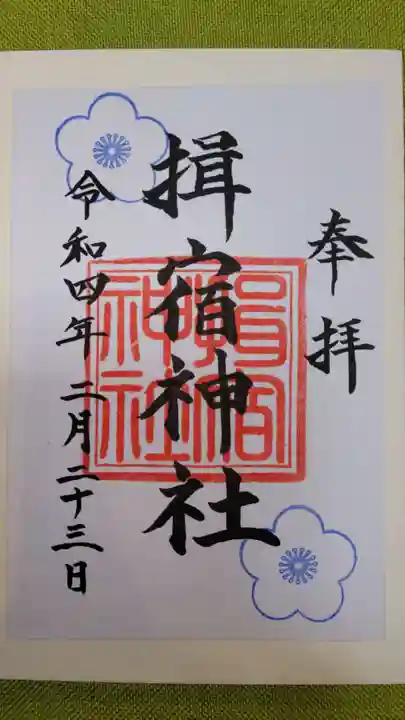 奉拝
揖宿神社
令和四年二月二十三日
揖宿
神社